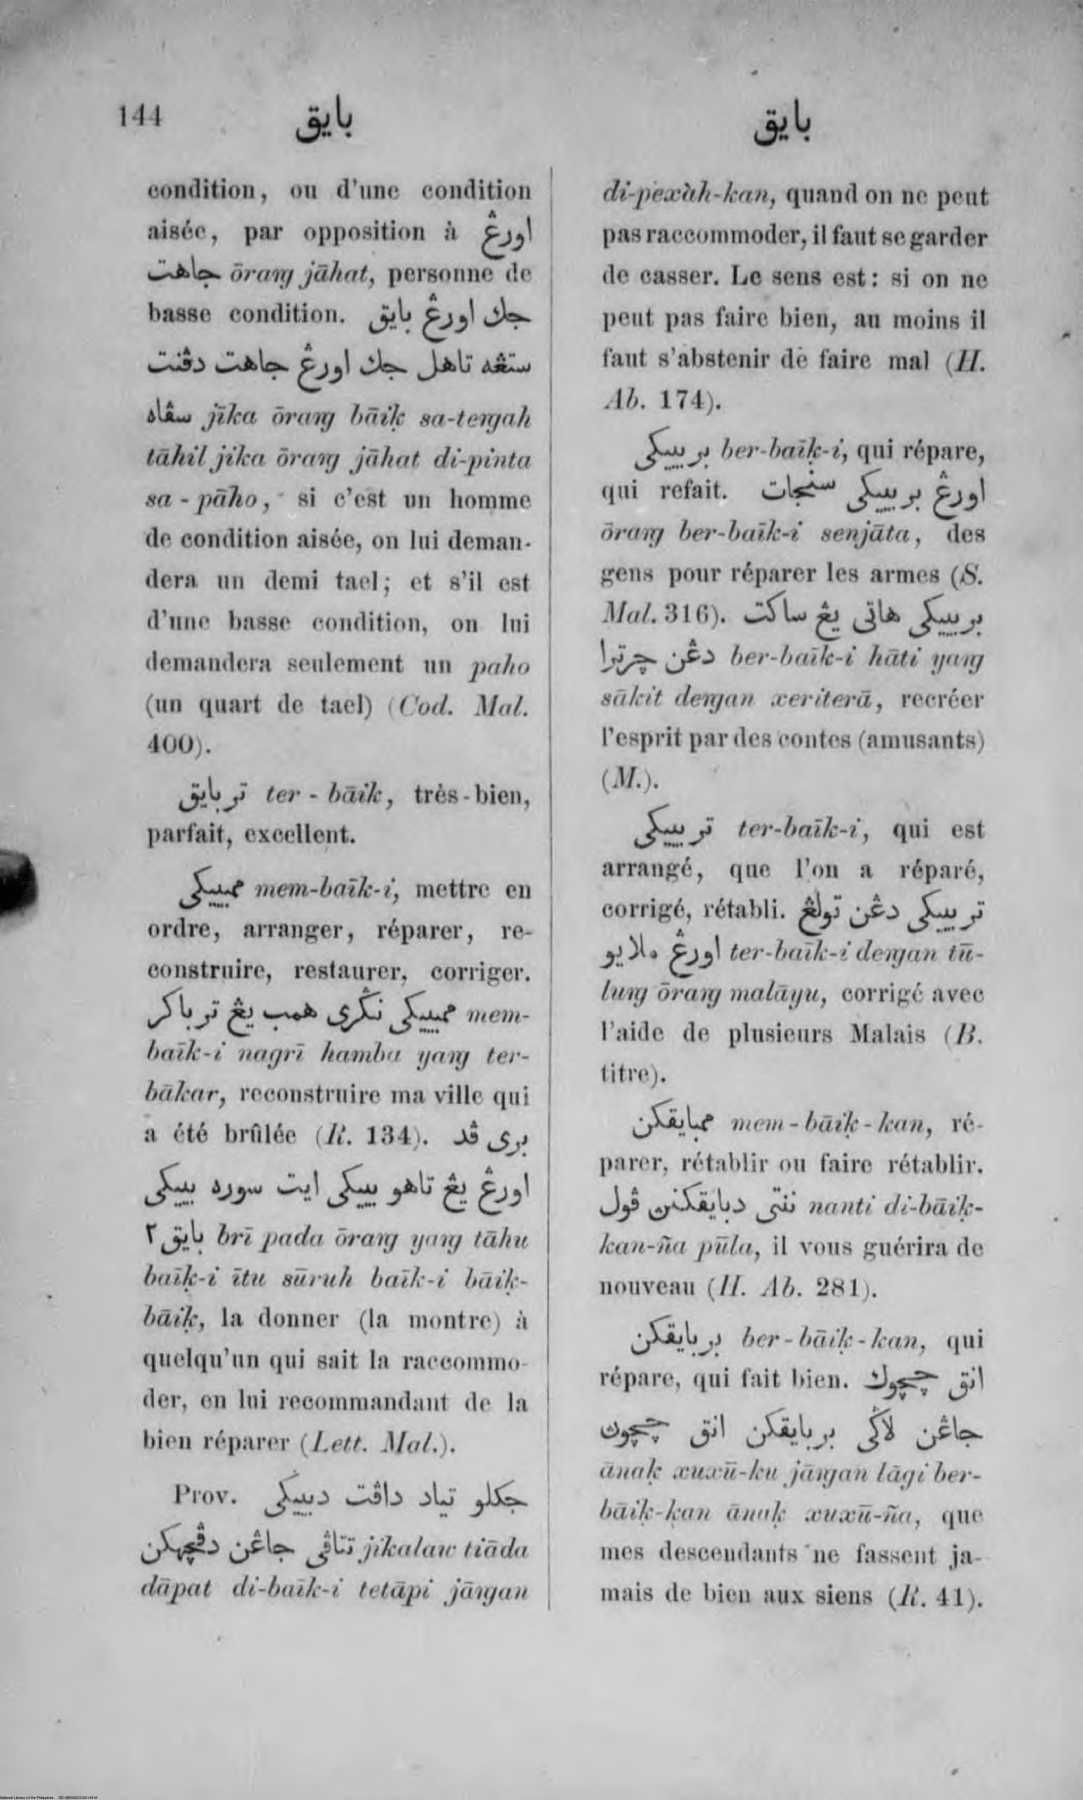 144
بايق
بايق
condition, ou d'une condition
aisée, par opposition à اورڠ
جاهت ōraŋ jāhat, personne de
basse condition. جك اورڠ بايق
ستڠه تاهل جك اورڠ جاهت دڤنت
سڤاه jīka ōraŋ bāiḳ sa-teŋah
tāhil jika ōraŋ jāhat di-pinta
sa-pāho, si c'est un homme
de condition aisée, on lui deman-
dera un demi tael; et s'il est
d'une basse condition, on lui
demandera seulement un paho
(un quart de tael) (Cod. Mal.
400).
تربايق ter-bāik, très-bien,
parfait, excellent.
ممبيیكي mem-baīk-i, mettre en
ordre, arranger, réparer, re-
construire, restaurer, corriger.
ممبيیكي نڬري همب يڠ ترباكر mem-
baīk-i nagrī hamba yaŋ ter-
bākar, reconstruire ma ville qui
a été brûlée (R. 134). بري ڤد
اورڠ يڠ تاهو بيیكي ايت سوره بيیكي
بايق٢ brī pada ōraŋ yaŋ tāhu
baīḳ-i ītu sūruh baīk-i bāiḳ-
bāiḳ, la donner (la montre) à
quelqu'un qui sait la raccommo-
der, en lui recommandant de la
bien réparer (Lett. Mal.).
Prov. جكلو تياد داڤت دبيیكي
تتاڤي جاڠن دڤچهكن jikalaw tiāda
dāpat di-baīk-i tetāpi jāŋan
di-pexàh-kan, quand on ne peut
pas raccommoder, il faut se garder
de casser. Le sens est: si on ne
peut pas faire bien, au moins il
faut s'abstenir de faire mal (H.
Ab. 174).
بربيیكي ber-baīḳ-i, qui répare,
qui refait. اورڠ بربيیكي سنجات
ōraŋ ber-baīk-i senjāta, des
gens pour réparer les armes (S.
Mal. 316). بربيیكي هاتي يڠ ساكت
دڠن چرترا ber-baīk-i hāti yaŋ
sākit deŋan xeriterā, recréer
l'esprit par des contes (amusants)
(M.).
تربيیكي ter-baīk-i, qui est
arrangé, que l'on a réparé,
corrigé, rétabli. تربيیكي دڠن تولڠ
اورڠ ملايو ter-baīk-i deŋan tū-
luŋ ōraŋ malāyu, corrigé avec
l'aide de plusieurs Malais (B.
titre).
ممبايقكن mem-bāiḳ-kan, ré-
parer, rétablir ou faire rétablir.
ننتي دبايقكنن ڤول nanti di-bāiḳ-
kan-ña pūla, il vous guérira de
nouveau (H. Ab. 281).
بربايقكن ber-bāiḳ-kan, qui
répare, qui fait bien. انق چچوك
جاڠن لاڬي بربايقكن انق چچون
ānaḳ xuxū-ku jāŋan lāgi ber-
bāiḳ-kan ānaḳ xuxū-ña, que
mes descendants ne fassent ja-
mais de bien aux siens (R. 41).